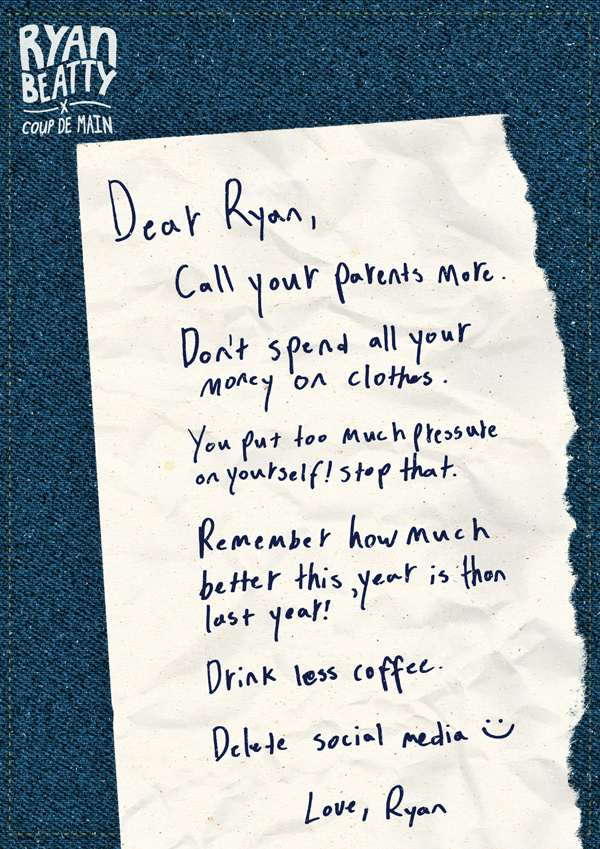 RYAN
BEATTY
X
COUP DE MAIN
Dear Ryan,
Call your parents more.
Don't spend all your
money on clothes.
You put too much pressure
on yourself! stop that.
Remember how much
better this year is than
last year!
Drink less coffee.
Delete social media :)
Love, Ryan